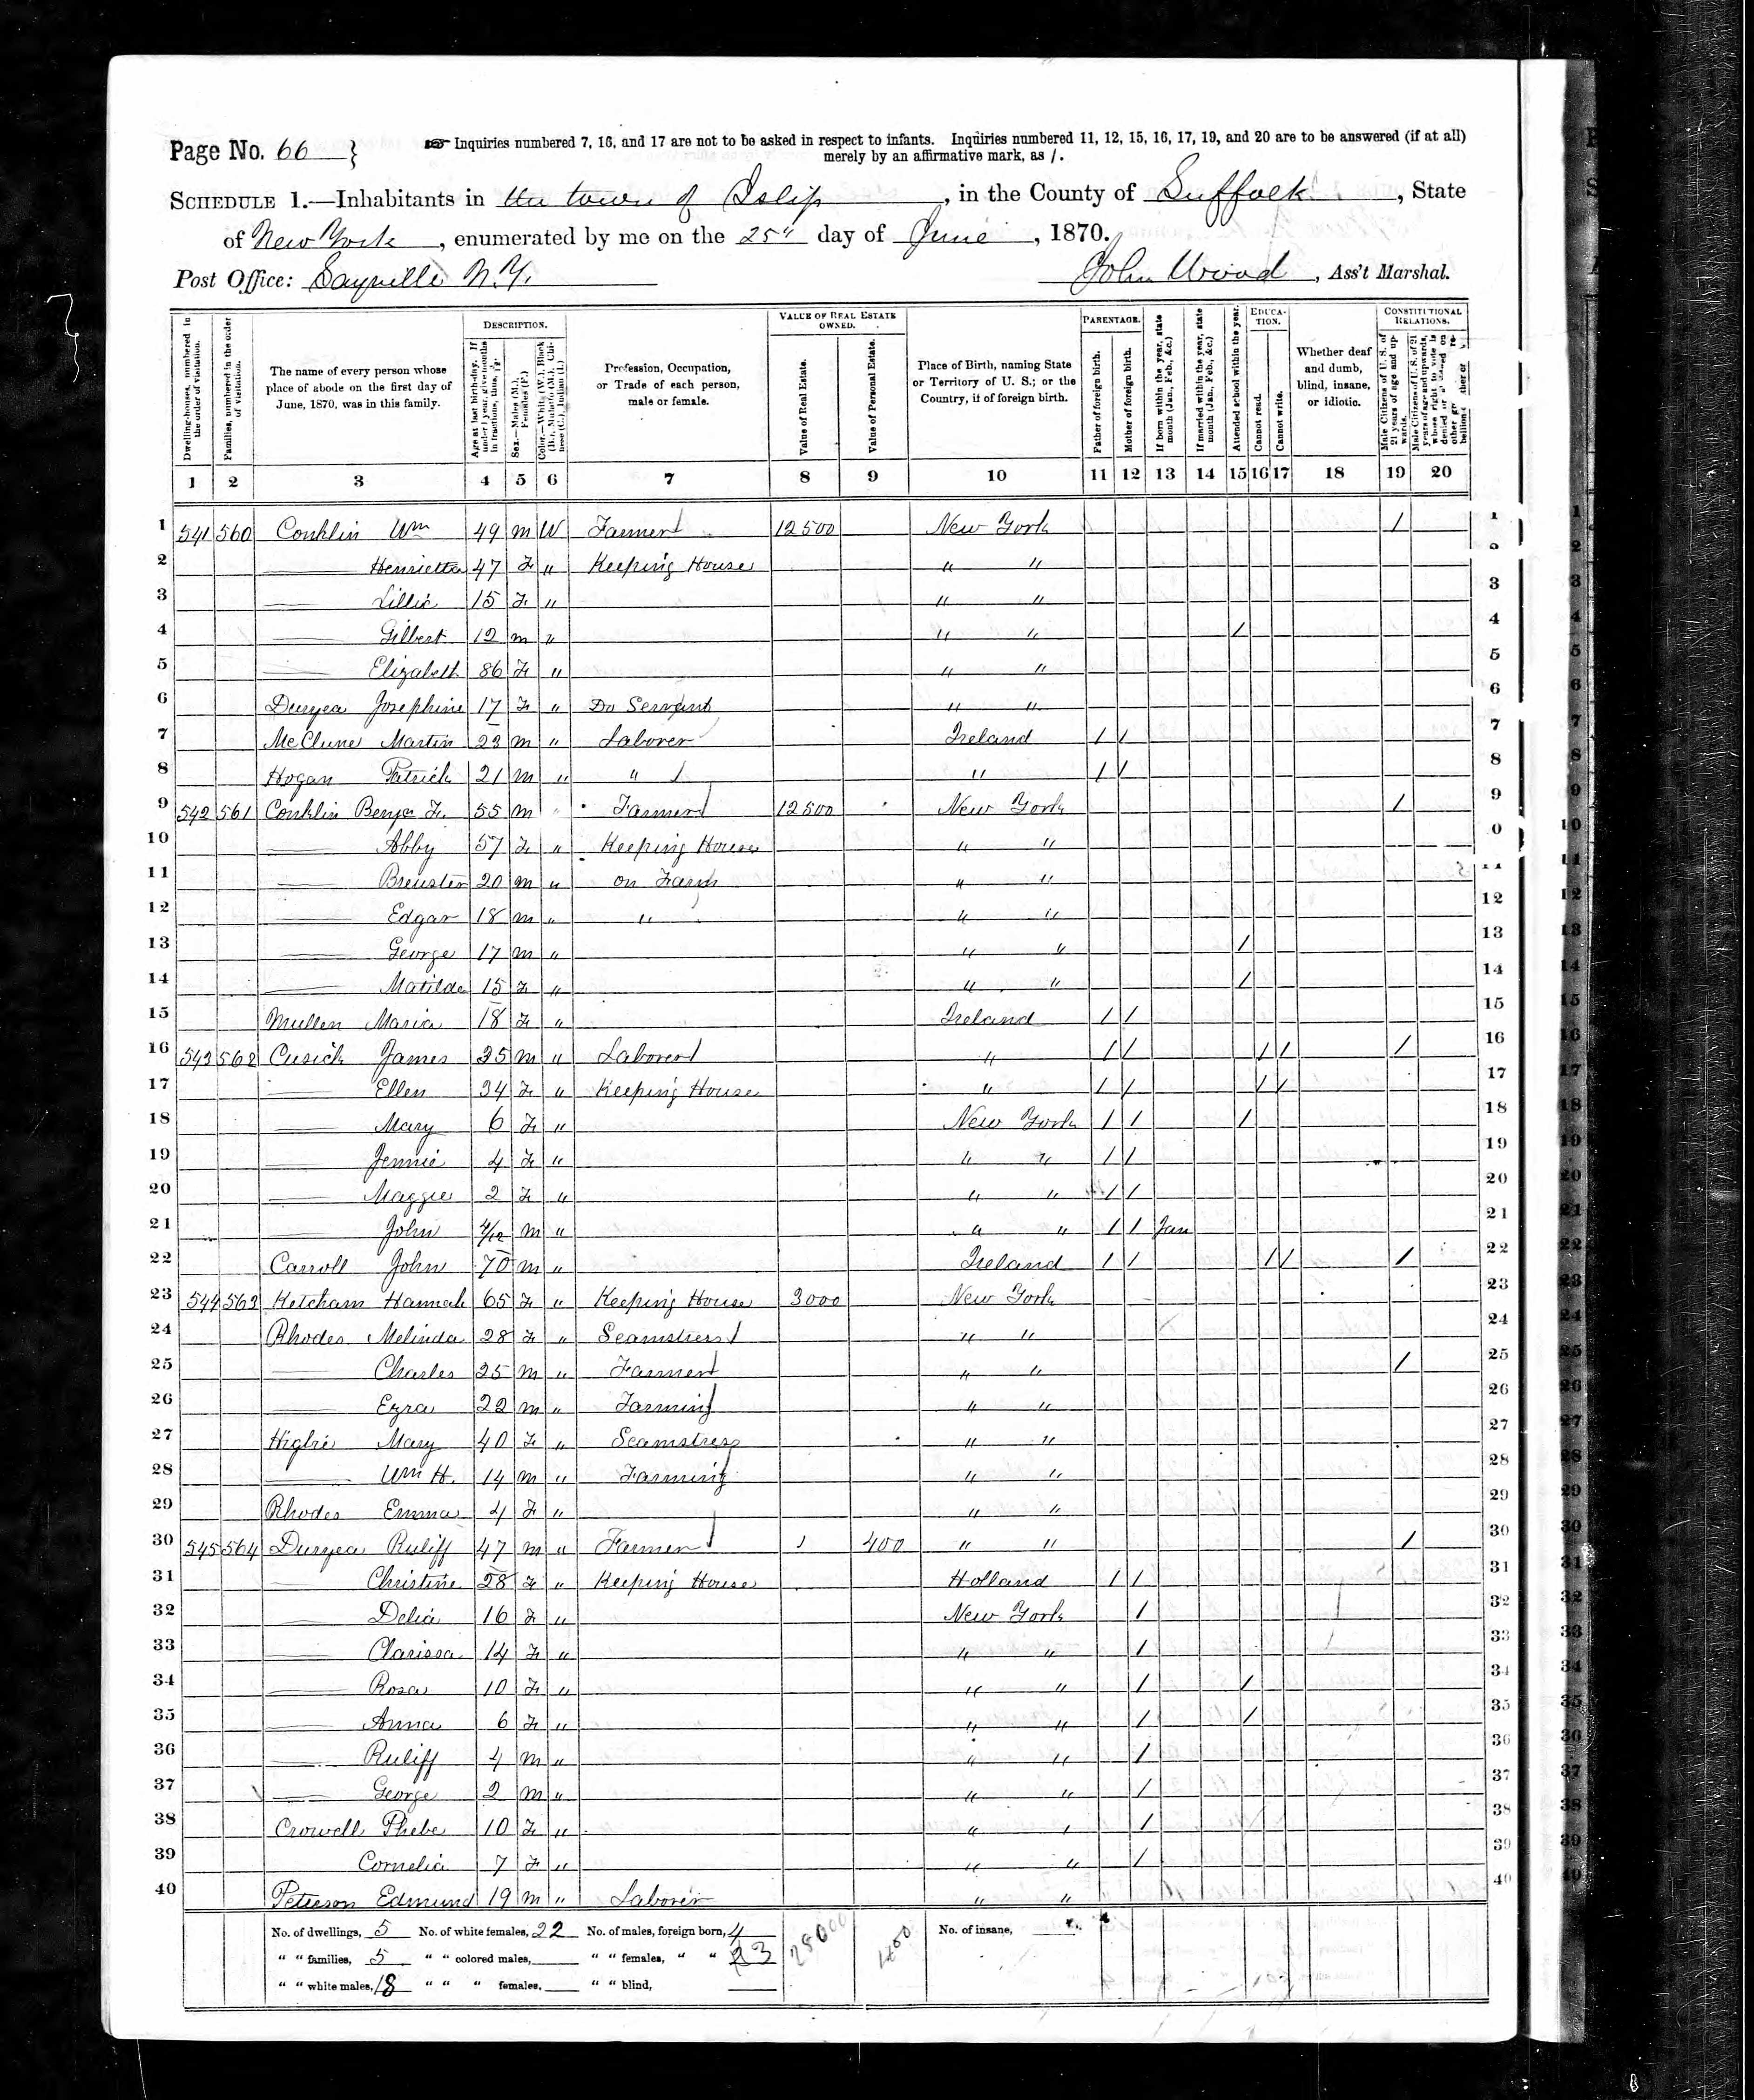 Page No. 66 }
Inquiries numbered 7, 16, and 17 are not to be asked in respect to infants. Inquiries numbered 11, 12, 15, 16, 17, 19, and 20 are to be answered (if at all)
merely by an affirmative mark, as /.
SCHEDULE 1.—Inhabitants in the town of Islip, in the County of Suffolk, State
of New York, enumerated by me on the 25" day of June, 1870.
Post Office: Sayville N.Y. John Wood, Ass't Marshal.
DESCRIPTION. VALUE OF REAL ESTATE OWNED. PARENTAGE. EDUCATION. CONSTITUTIONAL RELATIONS.
Dwelling-houses, numbered in the order of visitation.
Families, numbered in the order of visitation.
The name of every person whose place of abode on the first day of June, 1870, was in this family.
Age at last birth-day. If under 1 year, give months in fractions, thus,
Sex.—Males (M.), Females (F.)
Color.—White (W.), Black (B.), Mulatto (M.), Chinese (C.), Indian (I.)
Profession, Occupation, or Trade of each person, male or female.
Value of Real Estate.
Value of Personal Estate.
Place of Birth, naming State or Territory of U. S.; or the Country, if of foreign birth.
Father of foreign birth.
Mother of foreign birth.
If born within the year, state month (Jan., Feb., &c.)
If married within the year, state month (Jan., Feb., &c.)
Attended school within the year.
Cannot read.
Cannot write.
Whether deaf and dumb, blind, insane, or idiotic.
Male Citizens of U. S. of 21 years of age and upwards.
Male Citizens of U. S. of 21 years of age and upwards, whose right to vote is denied or
1 2 3 4 5 6 7 8 9 10 11 12 13 14 15 16 17 18 19 20
1 541 560 Conklin Wm 49 m W Farmer 12500 New York / 1
2 —— Henrietta 47 F " Keeping House " "
3 —— Lillie 15 F " " " 3
4 —— Gilbert 12 m " " " / 4
5 —— Elizabeth 86 F " " " 5
6 Duryea Josephine 17 F " Do Servant " " 6
7 McClune Martin 23 m " Laborer Ireland / / 7
8 Hogan Patrick 21 m " " " / / 8
9 542 561 Conklin Benja F. 55 m " Farmer 12500 New York / 9
10 —— Abby 57 F " Keeping House " " 0
11 —— Brewster 20 m " on Farm " "
12 —— Edgar 18 m " " " " 12
13 —— George 17 m " " " / 13
14 —— Matilda 15 F " " " / 14
15 Mullen Maria 18 F " Ireland / / 15
16 543 562 Cusick James 35 m " Laborer " / / / / / 16
17 —— Ellen 34 F " Keeping House " / / / / 17
18 —— Mary 6 F " New York / / / 18
19 —— Jennie 4 F " " " / / 19
20 —— Maggie 2 F " " " / / 20
21 —— John 4/12 m " " " / / Jan 21
22 Carroll John 70 m " Ireland / / / / / 22
23 544 563 Ketcham Hannah 65 F " Keeping House 3000 New York 23
24 Rhodes Melinda 28 F " Seamstress " " 24
25 —— Charles 25 m " Farmer " " / 25
26 —— Ezra 22 m " Farming " " 26
27 Higbie Mary 40 F " Seamstress " " 27
28 —— Wm H. 14 m " Farming " " 28
29 Rhodes Emma 4 F " " " 29
30 545 564 Duryea Ruliff 47 m " Farmer 400 " " / 30
31 —— Christine 28 F " Keeping House Holland / / 31
32 —— Delia 16 F " New York / 32
33 —— Clarissa 14 F " " " / 33
34 —— Rosa 10 F " " " / / 34
35 —— Anna 6 F " " " / / 35
36 —— Ruliff 4 m " " " / 36
37 —— George 2 m " " " / 37
38 Crowell Phebe 10 F " " " / 38
39 Cornelia 7 F " " " / 39
40 Peterson Edmund 19 m " Laborer " " 40
No. of dwellings, 5 No. of white females, 22 No. of males, foreign born, 4 28000 No. of insane,
" " families, 5 " " colored males, " " females, " " 3
" " white males, 18 " " " females, " " blind,